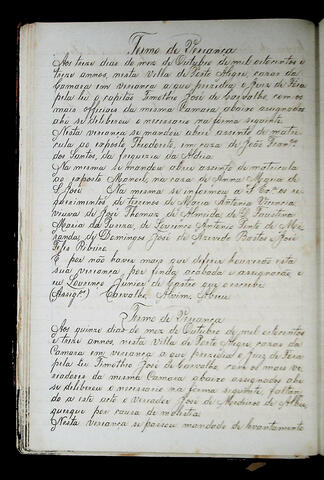 Termo de Veriança
Aos treze dias do mez de Outubro de mil oitocentos e
treze annos, nesta Villa de Porto Alegre, cazas da
Camara em veriança a que prezidiu o Juiz de Fóra
pela lei o capitão Timótheo José de Carvalho com os
mais officiais da mesma Camara abaixo assignados
ahi se deliberou o necessario na forma seguinte
Nesta veriança se mandou abrir assento de matri-
cula ao exposto Thiodorito, em caza de João Fran.co
dos Santos, da freguezia da Aldeia.
Na mesma se mandou abrir assento de matricula
ao exposto Manoel, na caza de Anna Maria de
S. José Na mesma se informou a S. Ex.a os re-
querimentos de terrenos de Maria Antonia Vicencia
viuva de José Thomaz de Almeida, de D. Faustina
Maria da Pureza, de Lourenço Antonio Pinto de Mi-
randa, de Domingos José de Azevedo Bastos, José
Ribeiro.
E por não haver mais que deferir houverão esta
sua veriança por finda, acabada e assignarão, e
eu Lourenço Junior de Castro que o escrevi
(Assig.) Carvalho, Alvim, Abreu
Termo de Veriança
Aos quinze dias do mez de Outubro de mil oitocentos
e treze annos, nesta Villa de Porto Alegre, cazas da
Camara em veriança a que prezidiu o Juiz de Fora
pela lei Timótheo José de Carvalho, com os mais ve-
riadores da mesma Camara abaixo assignados ahi
se deliberou o necessario na forma seguinte, faltan-
do a este acto o veriador José de Medeiros de Albu-
querque por causa de molestia.
Nesta veriança se passou mandado de levantamento